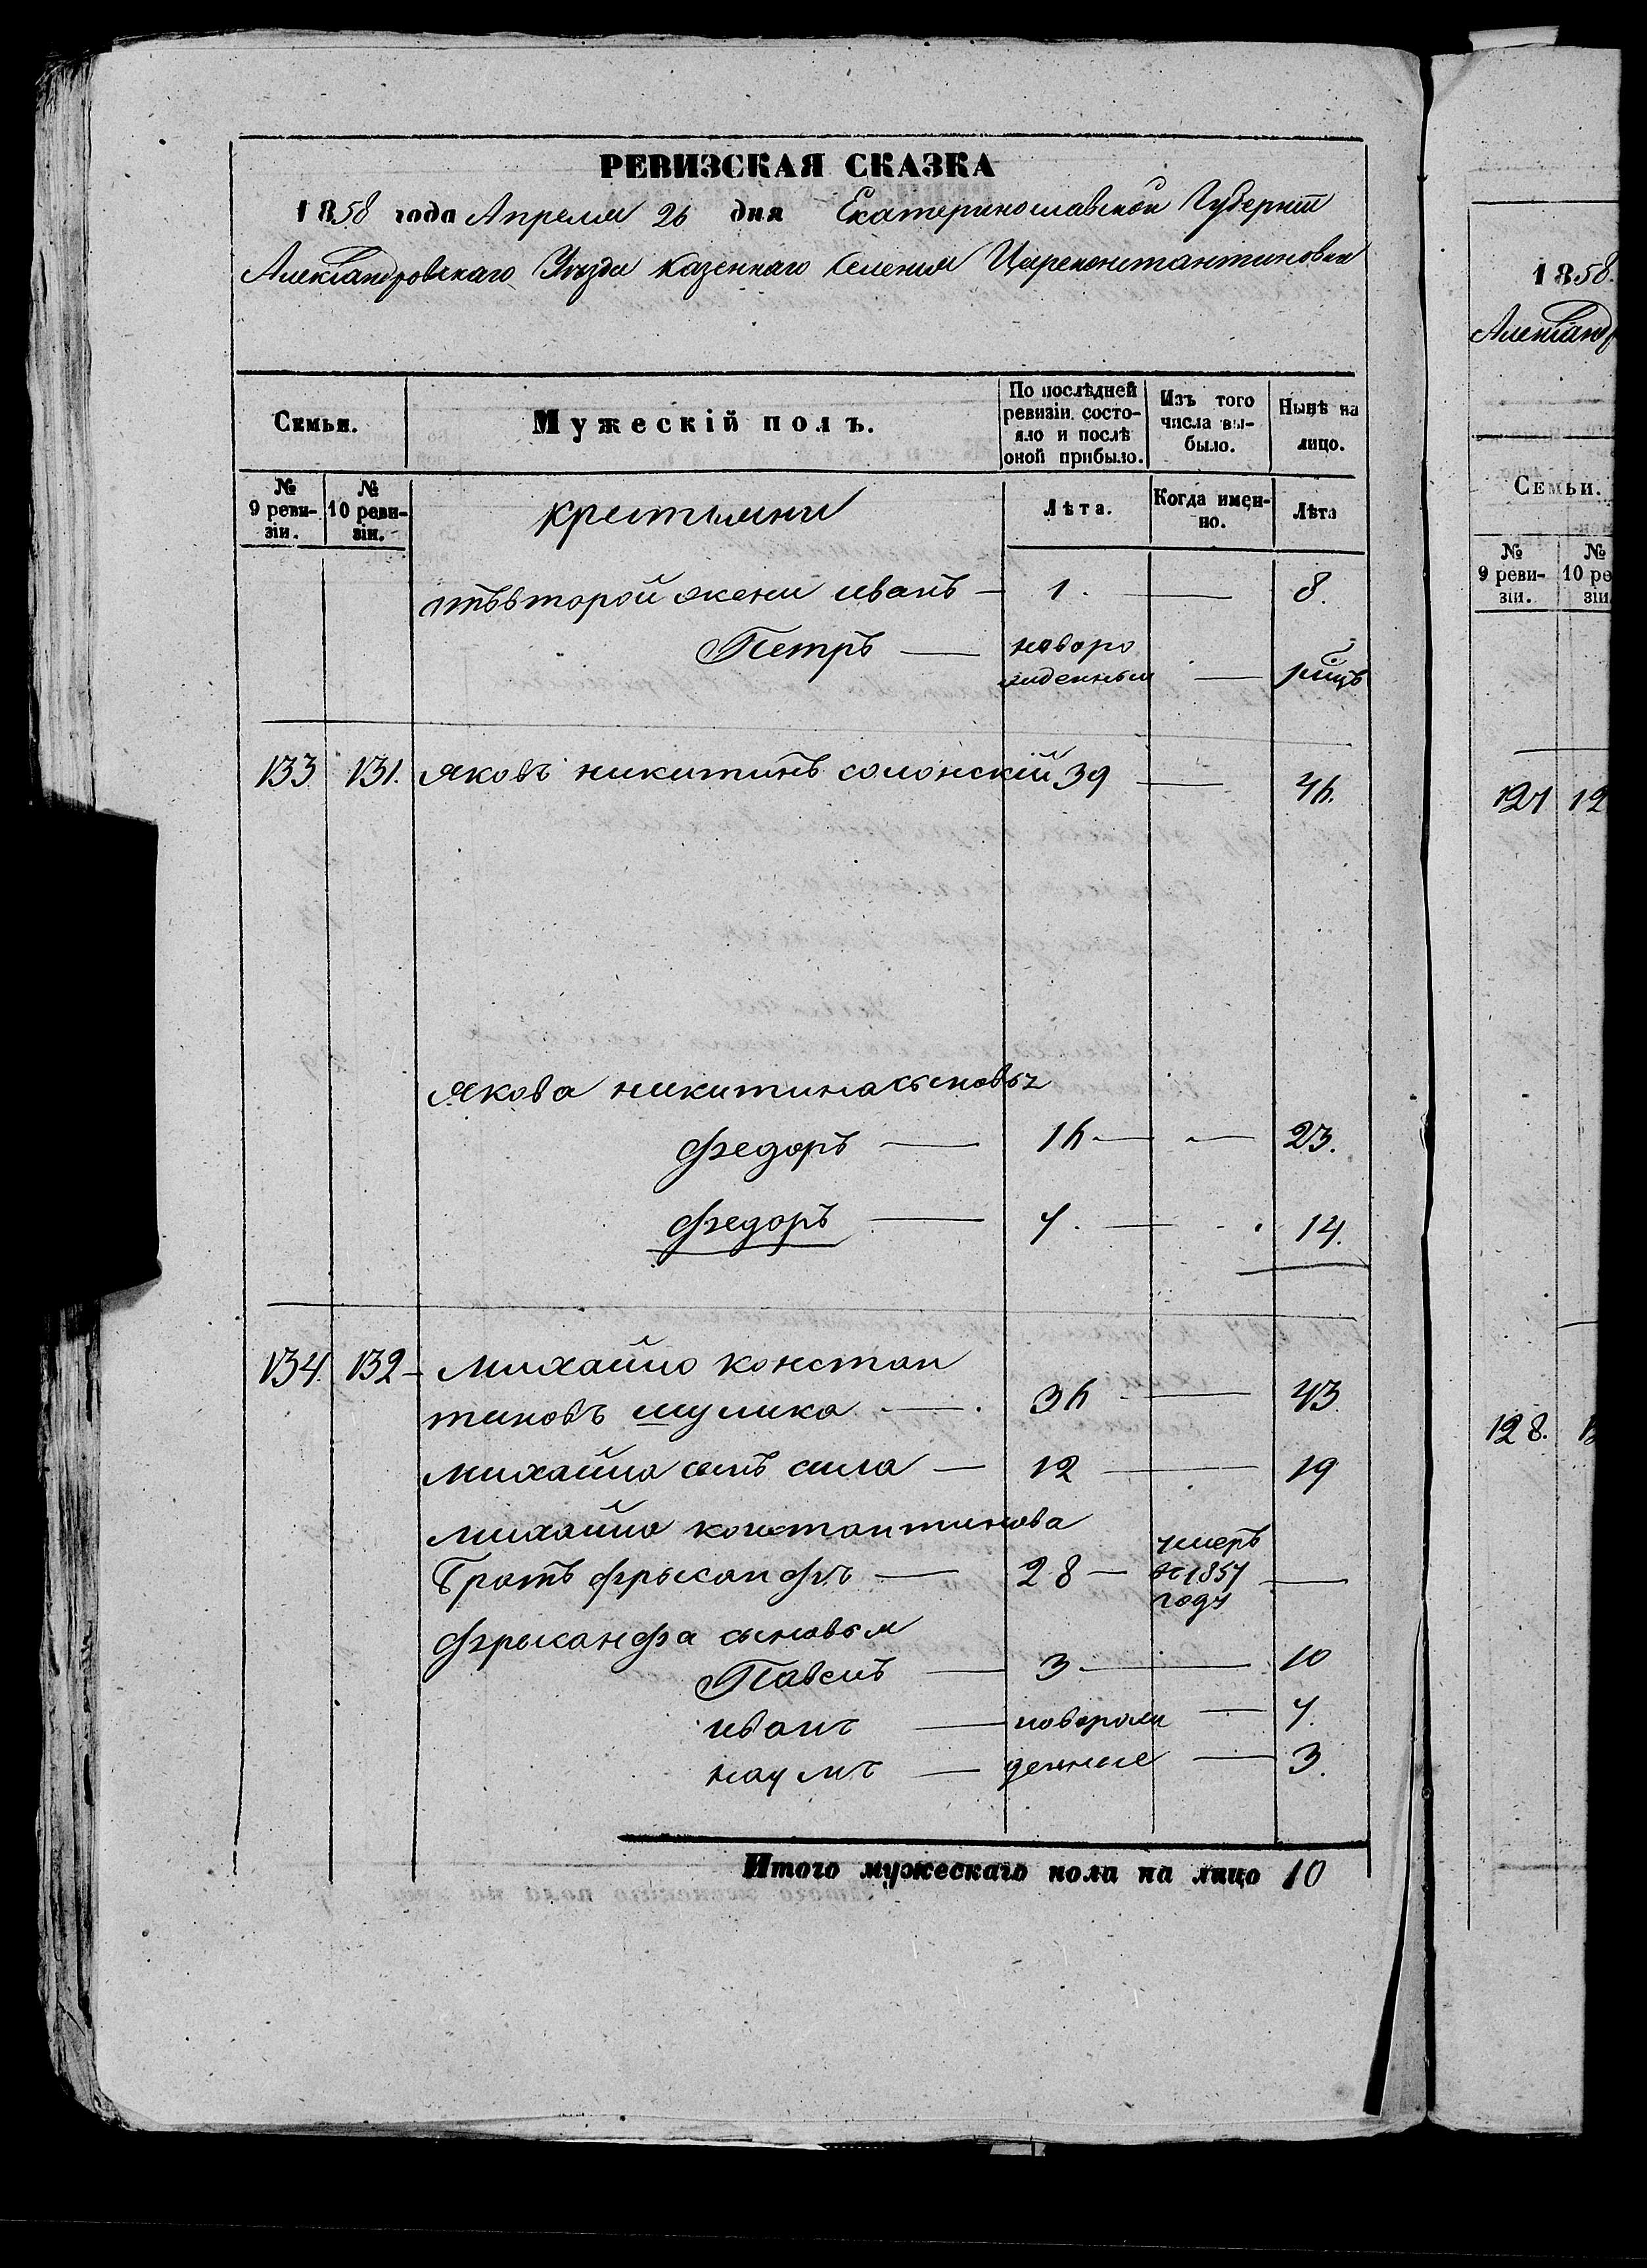 РЕВИЗСКАЯ СКАЗКА
1858 года Апреля 26 дня Екатеринославской Губернии
Александровскаго Уезда казеннаго селения Цареконстантиновки
Семьи.
Мужескій полъ.
По послѣдней ревизіи состо-
яло и послѣ
оной прибыло.
Изъ того
числа вы-
было.
Нынѣ на
лицо.
№
9 реви-
зіи.
№
10 реви-
зіи.
крестьяни
Лѣта.
Когда имен-
но.
Лѣта
отъ второй жени иванъ — 1. — 8.
Петръ — новоро
жденный —
133 131. яковъ никитинъ солонскій 39 — 46.
якова никитина сыновья
федоръ — 16 — 23.
федоръ — 7. — 14.
134. 132 михайло констан
тиновъ шулика — 36 — 43.
михайла сынъ сила — 12 — 19
михайла константинова
братъ фрысанфъ — 28 — умеръ
в 1857
году —
фрысанфа сыновья
Павелъ — 3 — 10
иванъ — новорож — 7.
наумъ — денные — 3.
Итого мужескаго пола на лицо 10
1858.
Александ
Семьи.
№
9 реви-
зіи.
№
10 ре
зіи
127 12
128.